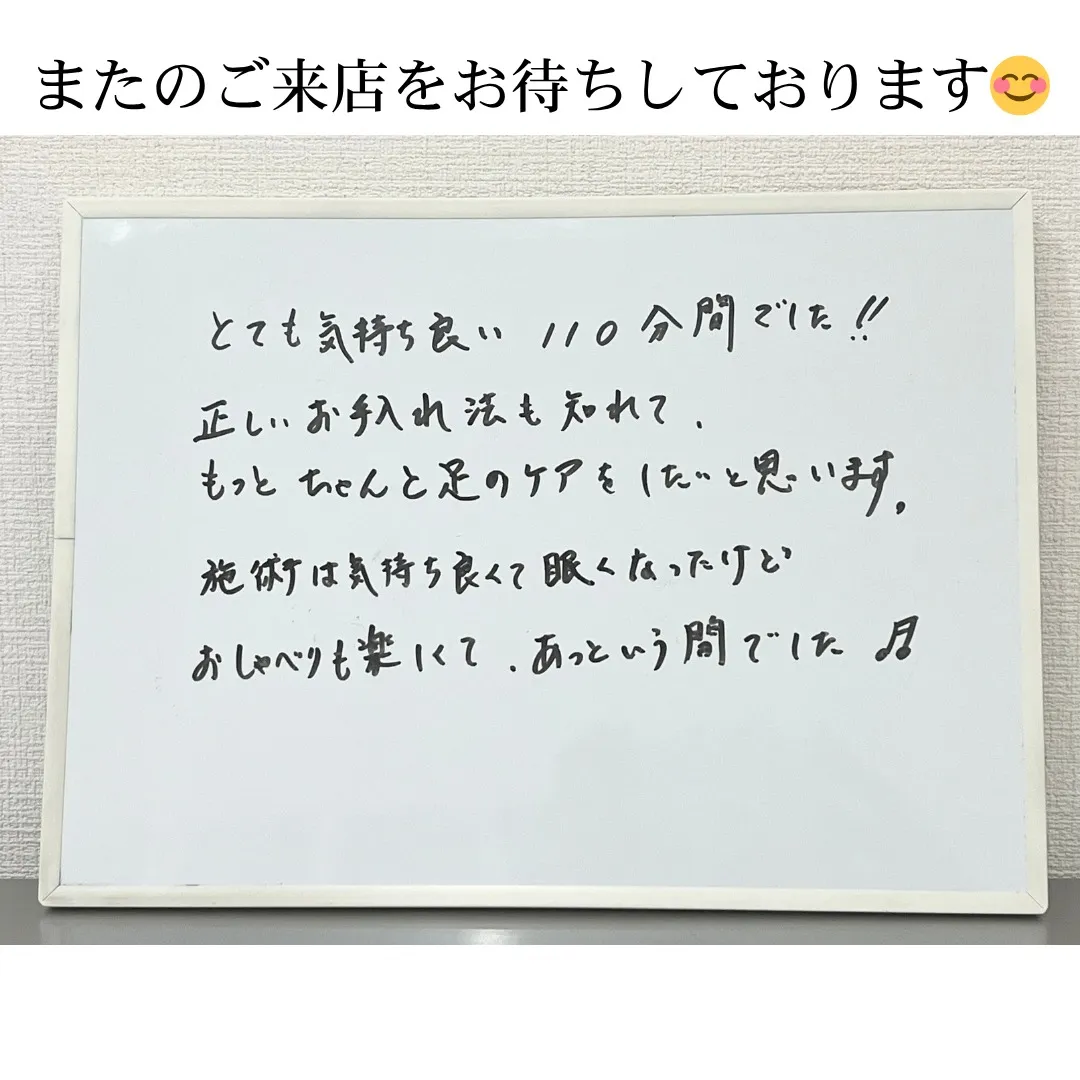 またのご来店をお待ちしております😊
とても気持ち良い 110分間でした!!
正しいお手入れ法も知れて、
もっとちゃんと足のケアをしたいと思います。
施術は気持ち良くて眠くなったけど
おしゃべりも楽しくて、あっという間でした♬